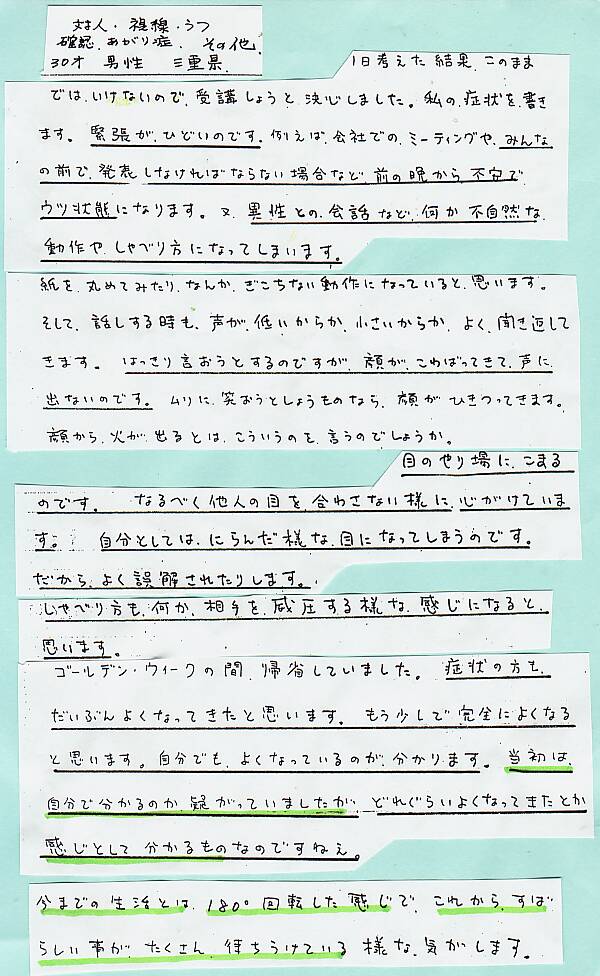 対人・視線・うつ
確認、あがり症、その他
30才 男性 三重県
1日考えた結果、このまま
では、いけないので、受講しようと、決心しました。私の、症状を、書き
ます。緊張が、ひどいのです。例えば、会社での、ミーティングや、みんな
の前で、発表しなければならない場合など、前の晩から、不安で
ウツ状態になります。又、異性との、会話など、何か不自然な、
動作や、しゃべり方になってしまいます。
紙を、丸めてみたり、なんか、ぎこちない動作になっていると、思います。
そして、話しする時も、声が、低いからか、小さいからか、よく、聞き返して
きます。はっきり言おうとするのですが、顔が、こわばってきて、声に、
出ないのです。ムリに、笑おうとしょうものなら、顔がひきつってきます。
顔から、火が、出るとは、こういうのを、言うのでしょうか。
目のやり場に、こまる
のです。なるべく他人の目を、合わさない様に、心がけていま
す。自分としては、にらんだ様な、目になってしまうのです。
だから、よく誤解されたりします。
しゃべり方も、何か、相手を、威圧する様な、感じになると、
思います。
ゴールデン・ウィークの間、帰省していました。症状の方も、
だいぶんよくなってきたと思います。もう少しで完全によくなる
と思います。自分でも、よくなっているのが、分かります。当初は、
自分で分かるのか、疑がっていましたが、どれぐらいよくなってきたとか
感じとして分かるものなのですねえ。
今までの生活とは、180°回転した感じで、これから、すば
らしい事が、たくさん、待ちうけている様な、気がします。